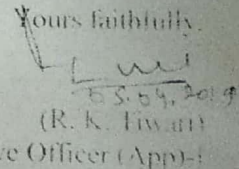 Yours faithfully,
05.04.2019
(R. K. Tiwari)
ve Officer (App)-I